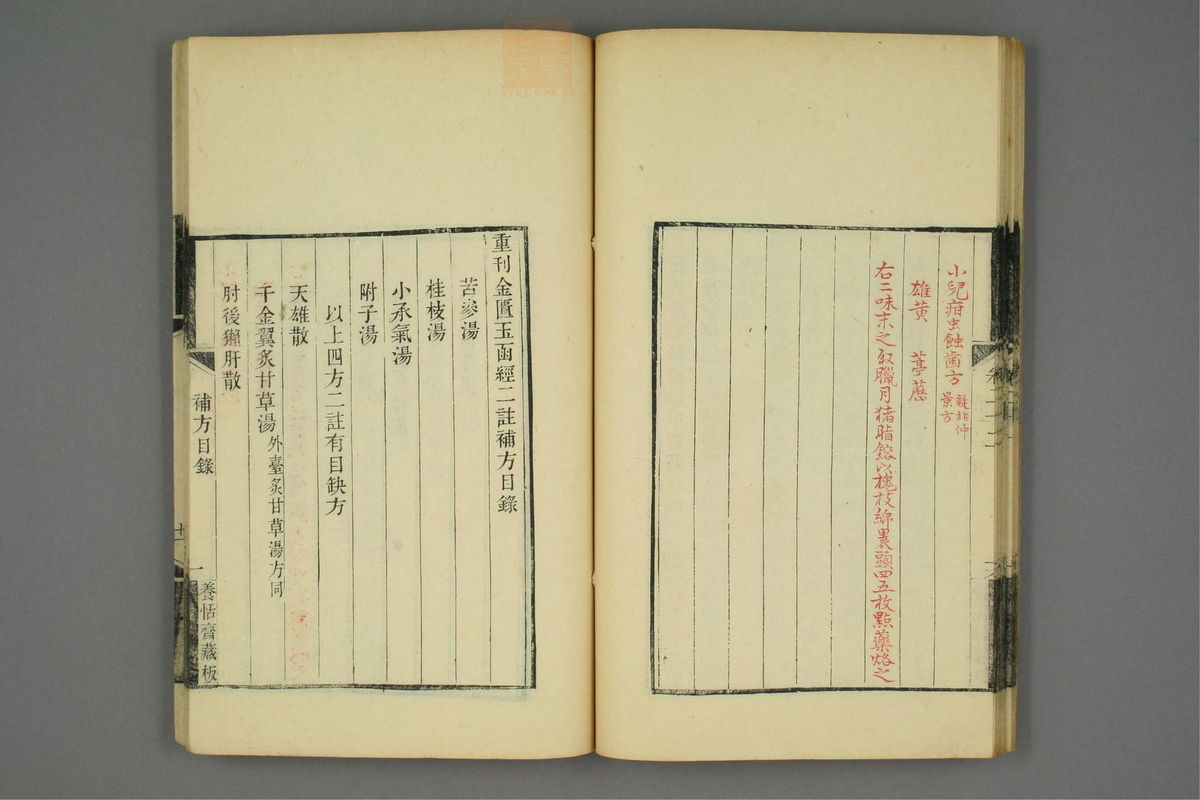 小兒疳虫蝕齒方疑非仲景方
雄黃　葶藶
右二味末之取臘月猪脂鎔以槐枝綿裹頭四五枚點藥烙之
重刊金匱玉函經二註補方目錄
苦參湯
桂枝湯
小承氣湯
附子湯
以上四方二註有目缺方
天雄散
千金翼炙甘草湯外臺炙甘草湯方同
肘後獺肝散
補方目錄
一
養恬齋藏板